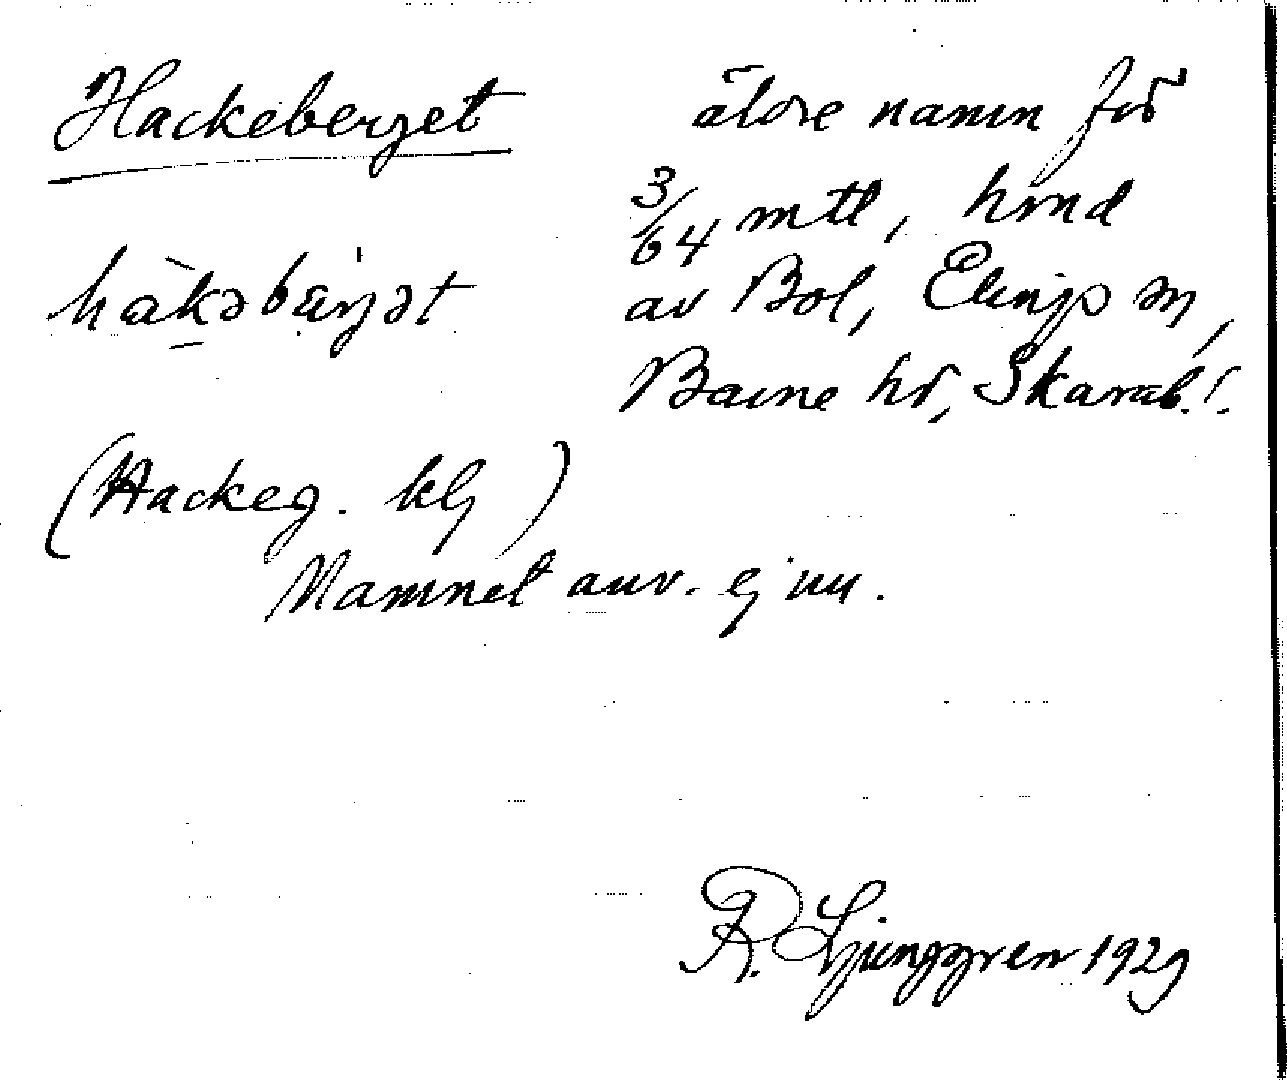 Hackeberget
hàkəbær̡ət
äldre namn för
3/64 mtl, hmd
av Bol, Elings sn,
Barne hd, Skarab. l.
(Hackeg. klg)
Namnet anv. ej nu.
R. Ljunggren 1929